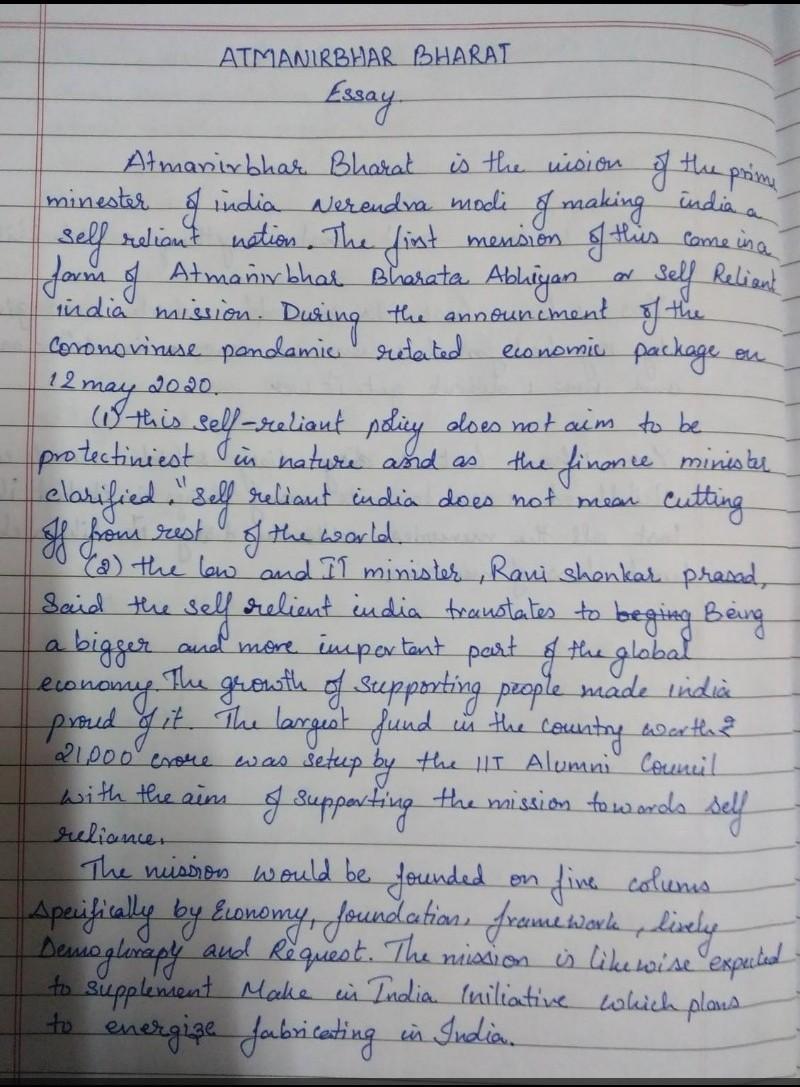 ATMANIRBHAR BHARAT
Essay.
Atmanirbhar Bharat is the vision of the prime
minester of india Nerendra modi of making india a
self reliant nation. The first mension of this come in a
form of Atmanirbhar Bharata Abhiyan or Self Reliant
india mission. During the announcment of the
Coronoviruse pandamic retated economic package on
12 may 2020.
(1) this self-reliant policy does not aim to be
protectiniest in nature and as the finance minister
clarified, "self reliant india does not mean cutting
off from rest of the world.
(2) the law and IT minister, Ravi Shankar prasad,
Said the self relient india translates to beging Being
a bigger and more impertent part of the global
economy. The growth of supporting people made india
proud of it. The largest fund in the country worth ₹
21,000 crore was setup by the IIT Alumni Council
with the aim of supporting the mission towards self
reliance.
The mission would be founded on five colums
Specifically by Economy, foundation, framework, lively
Demoghrapy and Request. The mission is likewise expected
to supplement Make in India Iniliative which plans
to energize fabricating in India.